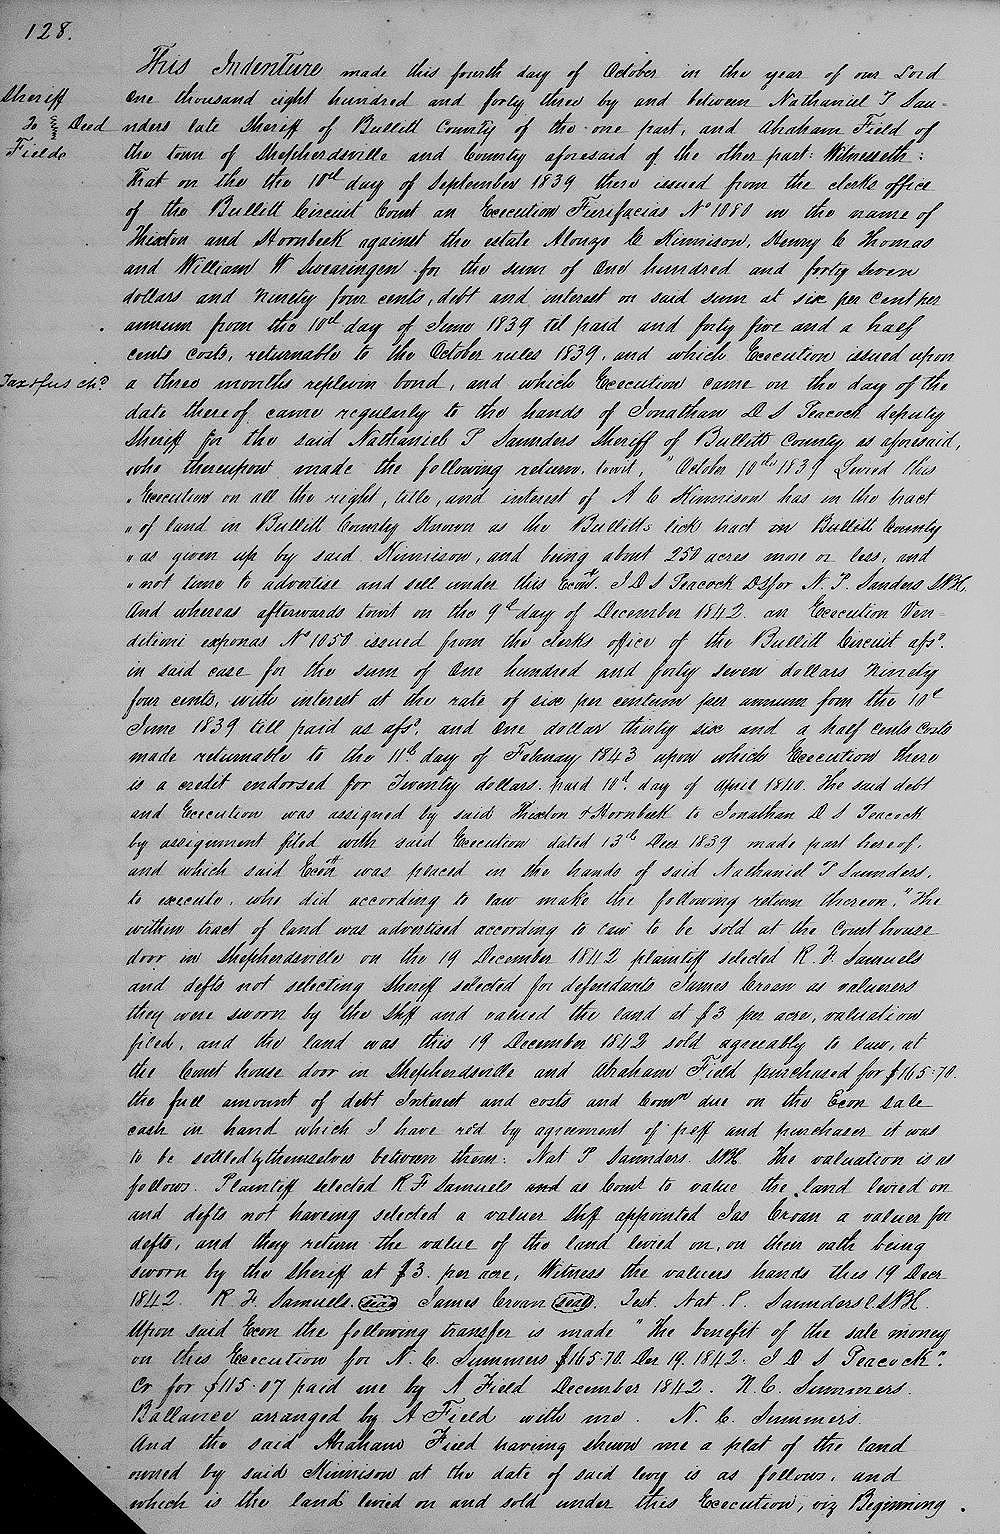 128.
This Indenture made this fourth day of October in the year of our Lord
Sheriff
one thousand eight hundred and forty three by and between Nathaniel P Sau-
To Deed
nders late Sheriff of Bullitt County of the one part, and Abraham Field of
Field
the town of Shepherdsville and County aforesaid of the other part: Witnesseth:
That on the the 10th day of September 1839 there issued from the clerks office
of the Bullitt Circuit Court an Execution Fierifacias No 1080 in the name of
Thixton and Hornbeck against the estate Alonzo C Kinnison, Henny C Thomas
and William W Swearingen for the sum of One hundred and forty seven
dollars and ninety four cents, debt and interest on said sum at six per cent per
annum from the 10th day of June 1839 til paid and forty five and a half
cents costs, returnable to the October rules 1839, and which Execution issued upon
Tax & fus chd
a three months replevin bond, and which Execution came on the day of the
date thereof came regularly to the hands of Jonathan D S Peacock deputy
Sheriff for the said Nathaniel P Saunders Sheriff of Bullitt County as aforesaid,
who thereupon made the following return, towit, "October 10th 1839 Levied this
" Execution on all the right, title, and interest of A C Kinnison has in the tract
" of land in Bullitt County Known as the Bullitts lick tract in Bullitt County
" as given up by said Kinnison, and being about 250 acres more or less, and
" not time to advertise and sell under this Econ. J D S Peacock DS for N. P. Sanders SBC.
And whereas afterwards towit on the 9th day of December 1842. an Execution Ven-
ditioni exponas No 1050 issued from the clerks office of the Bullitt Circuit afsd.
in said case for the sum of One hundred and forty seven dollars ninety
four cents, with interest at the rate of six per centum per annum from the 10th
June 1839 till paid as afsd, and one dollar thirty six and a half cents costs
made returnable to the 11th day of February 1843 upon which Execution there
is a credit endorsed for Twenty dollars. paid 10th day of april 1840. The said debt
and Execution was assigned by said Thixton & Hornbeck to Jonathan D S Peacock
by assignment filed with said Execution dated 13th Decr 1839 made part hereof.
and which said Econ was placed in the hands of said Nathaniel P Saunders,
to execute, who did according to law make the following return thereon, "The
within tract of land was advertised according to law to be sold at the Court house
door in Shepherdsville on the 19 December 1842 plaintiff selected R. F. Samuels
and defts not selecting Sheriff selected for defendants James Croan as valuers
they were sworn by the Shff and valued the land at $3 per acre, valuation
filed, and the land was this 19 December 1842 sold agreeably to law, at
the Court house door in Shepherdsville and Abraham Field purchased for $165.70.
the full amount of debt Interest and costs and Comn due on the Econ sale
cash in hand which I have recd by agreement of plff and purchaser it was
to be settled by themselves between them. Nat P Saunders. SBC. The valuation is as
follows. Plaintiff selected R F Samuels and as Comr to value the land levied on
and defts not haveing selected a valuer Shff appointed Jas Croan a valuer for
defts, and they return the value of the land levied on, on their oath being
sworn by the Sheriff at $3. per acre, Witness the valuers hands this 19 Decr
1842. R. F. Samuels. seal James Croan seal. Test. Nat. P. Saunders SBC.
Upon said Econ the following transfer is made "The benefit of the sale money
on this Execution for N. C. Summers $165.70. Dec 19. 1842. J D S Peacock".
Cr for $115.07 paid me by A Field December 1842. N. C. Summers.
Ballance arranged by A Field with me. N. C. Summers.
And the said Abraham Field haveing shewn me a plat of the land
owned by said Kinnison at the date of said levy is as follows, and
which is the land levied on and sold under this Execution, viz Beginning